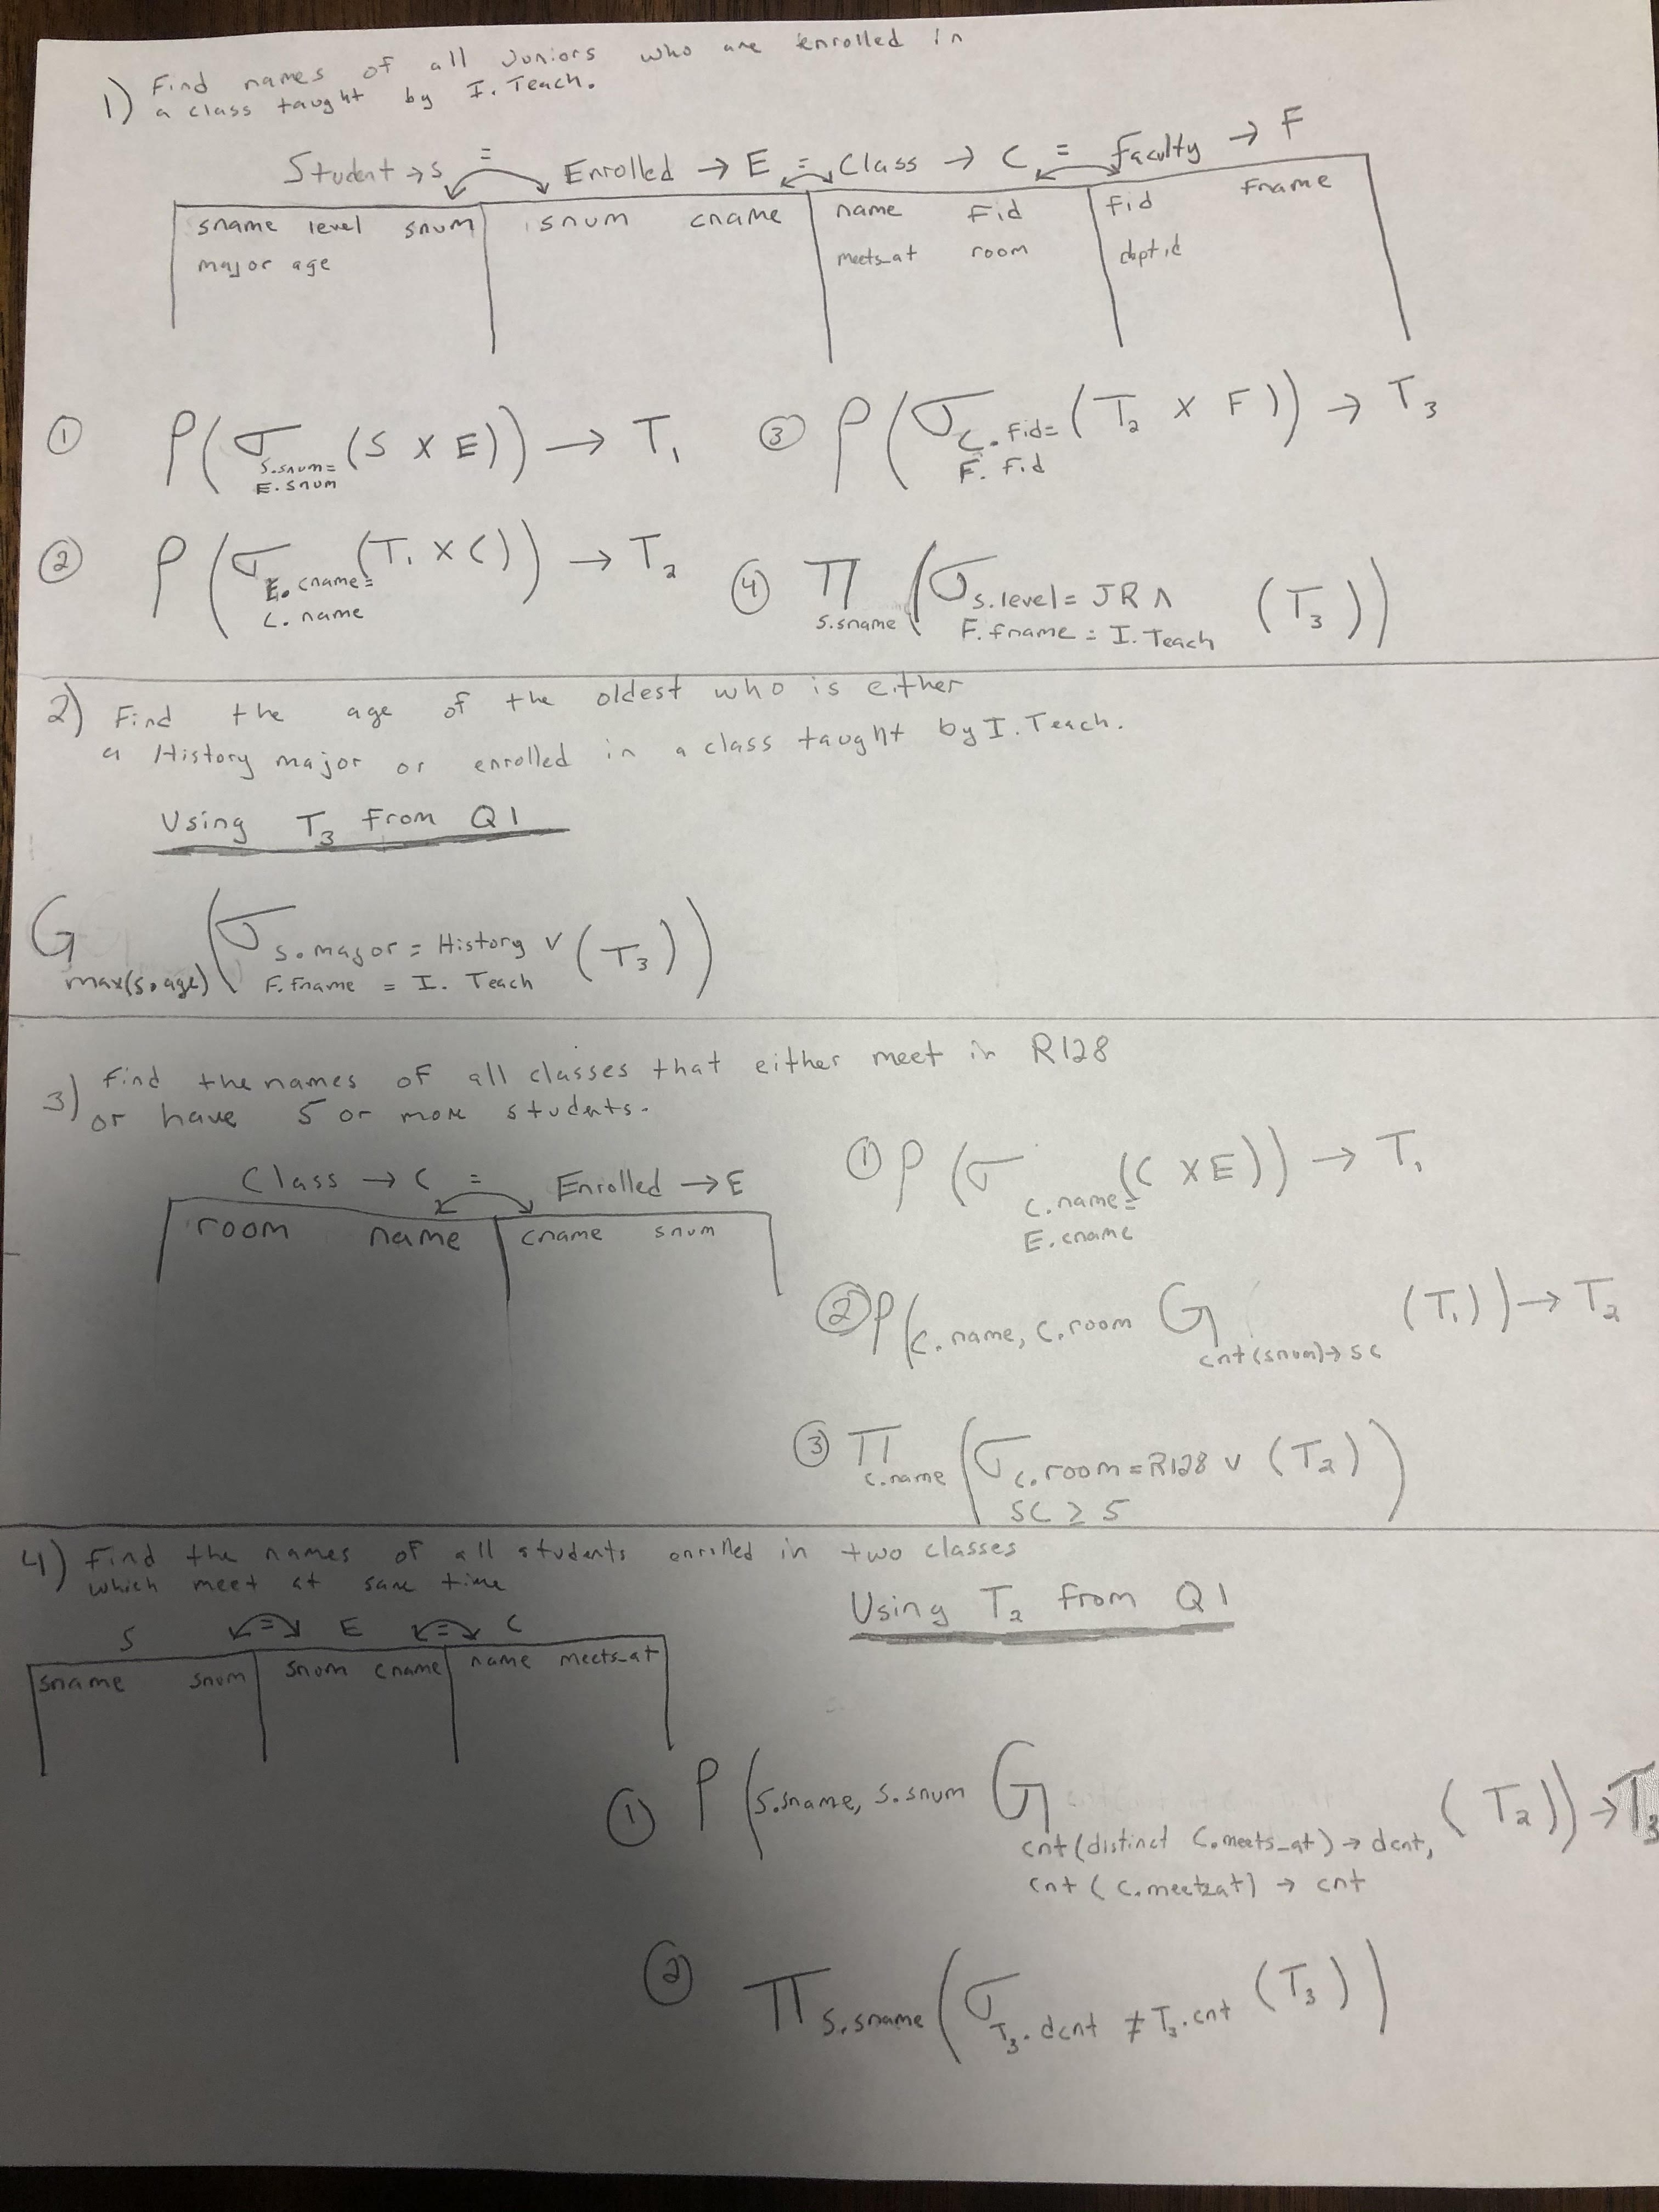 1) Find names of all Juniors who are enrolled in
a class taught by I. Teach.
Student → S = Enrolled → E = Class → C = Faculty → F
sname level snum | snum cname | name Fid | Fid Fname
major age | meets_at room | dptid
① ρ(σ S.snum= E.snum (S X E)) → T₁
② ρ(σ E.cname= C.name (T₁ X C)) → T₂
③ ρ(σ C.Fid= F.Fid (T₂ X F)) → T₃
④ π S.sname (σ S.level= JR ∧ F.fname = I. Teach (T₃))
2) Find the age of the oldest who is either
a History major or enrolled in a class taught by I. Teach.
Using T₃ from Q1
G max(s.age) (σ S.major = History ∨ F.Fname = I. Teach (T₃))
3) Find the names of all classes that either meet in R128
or have 5 or more students.
Class → C = Enrolled → E
room name | cname snum
① ρ(σ C.name= E.cname (C X E)) → T₁
② ρ(C.name, C.room G cnt(snum)→ sc (T₁)) → T₂
③ π C.name (σ C.room=R128 ∨ SC ≥ 5 (T₂))
4) Find the names of all students enrolled in two classes
which meet at same time
Using T₂ from Q1
S = E = C
sname snum | snum cname | name meets_at
① ρ(S.sname, S.snum G cnt(distinct C.meets_at) → dcnt, cnt(C.meets_at) → cnt (T₂)) → T₃
② π S.sname (σ T₃.dcnt ≠ T₃.cnt (T₃))